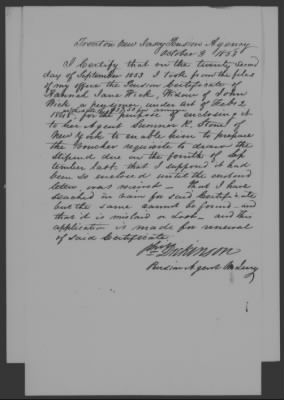 Trenton New Jersey Pension Agency
October 3 1853
I Certify that on the twenty second
day of September 1853 I took from the files
of my office the Pension Certificate of
Hannah Jane Wick, Widow of John
Wick a pensioner under Act of Feb 2
1848, for the purpose of enclosing it
to her Agent Sumner K. Stone of
New York to enable him to prepare
the Voucher requisite to draw the
Stipend due on the fourth of Sep
tember last, that I supposed it had
been so enclosed until the enclosed
letter was received - that I have
searched in vain for said Certificate
but the same cannot be found - and
that it is mislaid or lost - and this
application is made for renewal
of said Certificate
Dickinson
Pension Agent N Jersey